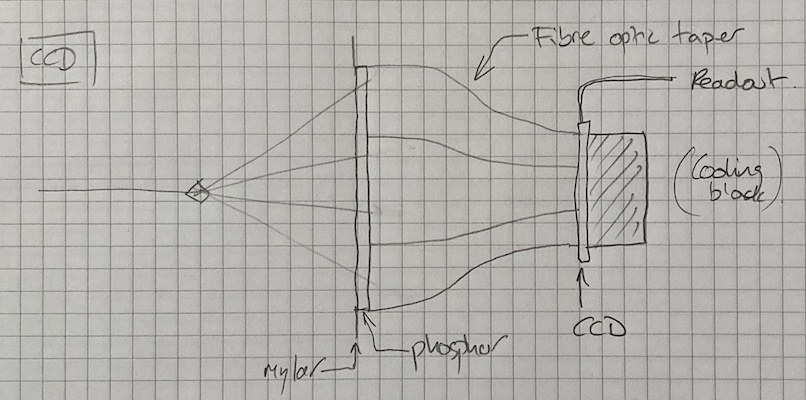 CCD
Fibre optic taper
Readout
(Cooling
block)
CCD
phosphor
Mylar